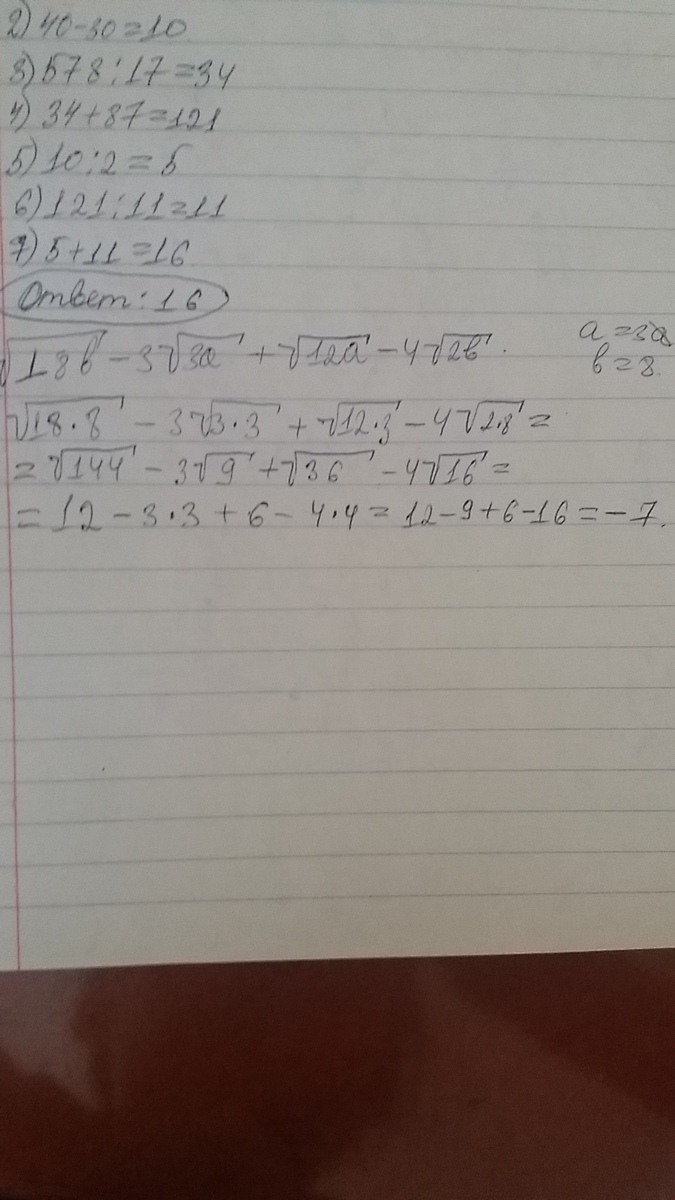 2) 40-30=10
3) 578:17=34
4) 34+87=121
5) 10:2=5
6) 121:11=11
7) 5+11=16
Ответ: 16
√18b - 3√3a + √12a - 4√2b. a=3
b=8.
√18·8 - 3√3·3 + √12·3 - 4√2·8 =
= √144 - 3√9 + √36 - 4√16 =
= 12 - 3·3 + 6 - 4·4 = 12-9+6-16=-7.